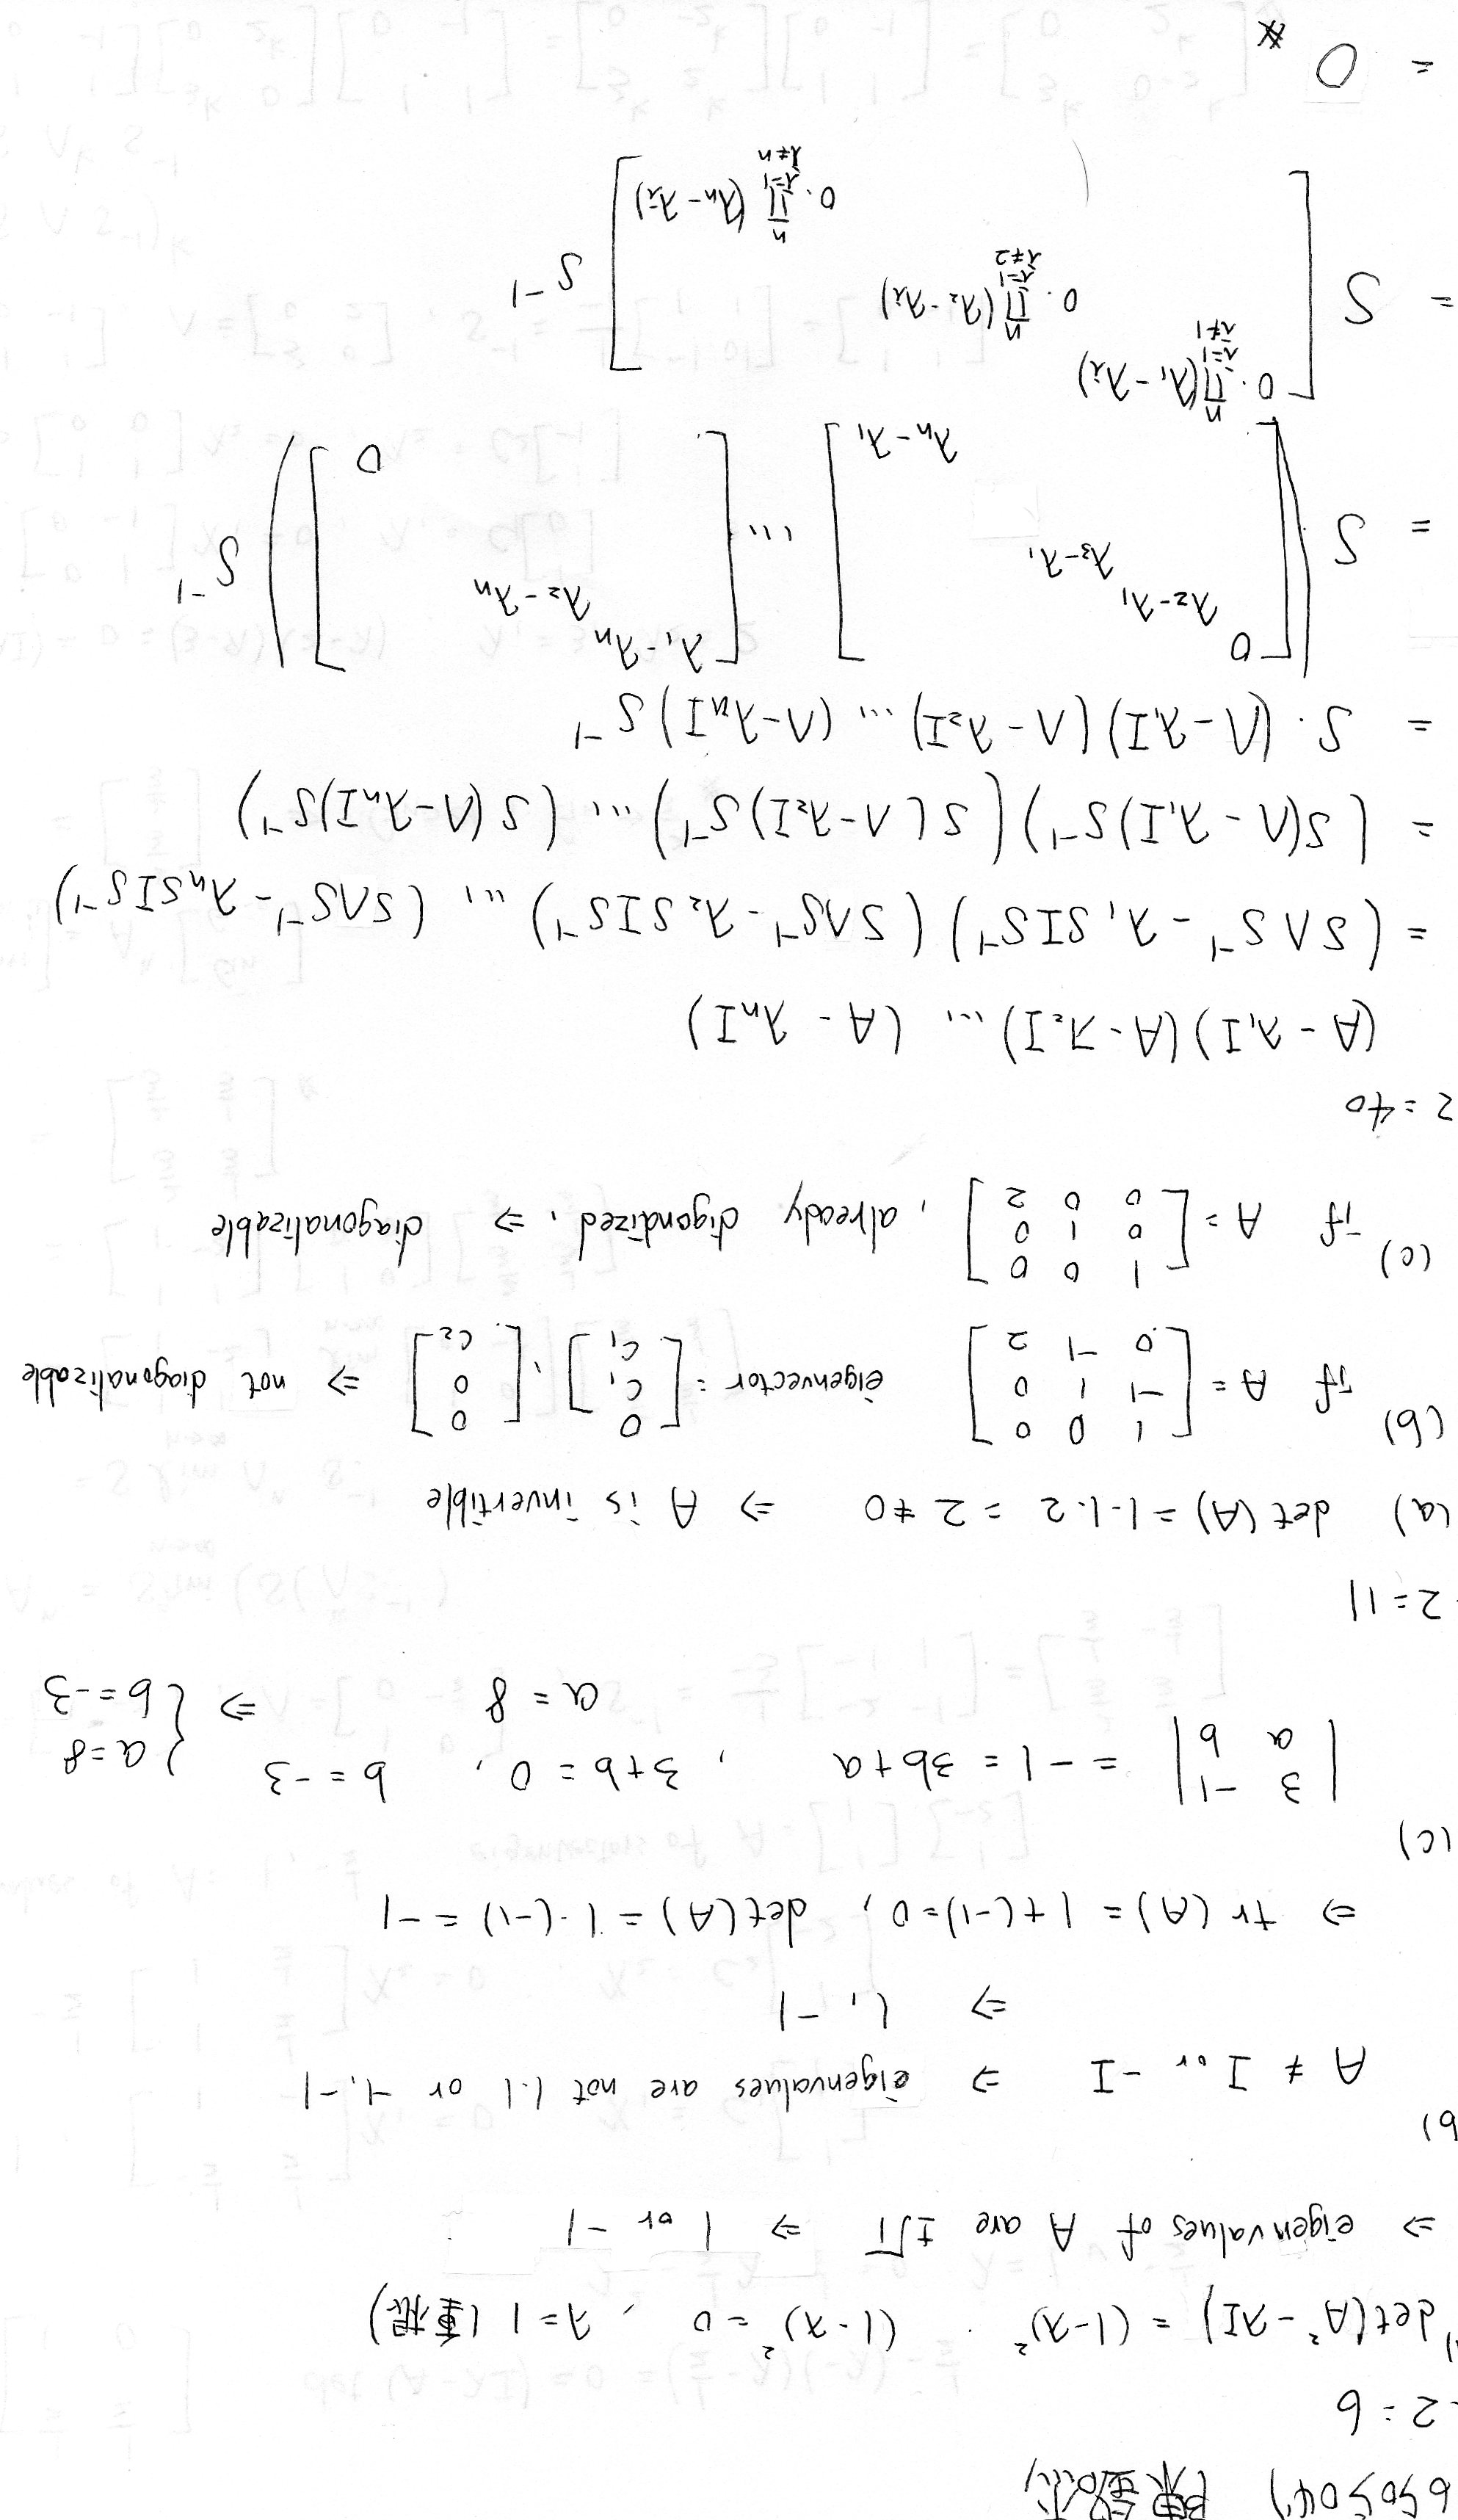 6505047 陳銘杰
.2=6
det(A² - λI) = (1-λ)² . (1-λ)² = 0 , λ=1 (重根)
⇒ eigenvalues of A are ±√1 ⇒ 1 or -1
b)
A ≠ I or -I ⇒ eigenvalues are not 1.1 or -1,-1
⇒ 1, -1
⇒ tr(A) = 1+(-1)=0, det(A) = 1·(-1) = -1
(c)
| 3 -1 | = -1 = 3b+a , 3+b=0, b=-3 { a=8
| a b | a=8 ⇒ { b=-3
.2=11
(a) det(A) = 1·1·2 = 2 ≠0 ⇒ A is invertible
(b) if A = [ 1 0 0 ; -1 1 0 ; 0 -1 2 ] eigenvector = [ 0 ; c₁ ; c₁ ] , [ 0 ; 0 ; c₂ ] ⇒ not diagonalizable
(c) if A = [ 1 0 0 ; 0 1 0 ; 0 0 2 ] , already digondized. ⇒ diagonalizable
2=40
(A - λ₁I)(A - λ₂I) ... (A - λnI)
= (SΛS⁻¹ - λ₁SIS⁻¹)(SΛS⁻¹ - λ₂SIS⁻¹) ... (SΛS⁻¹ - λnSIS⁻¹)
= (S(Λ - λ₁I)S⁻¹)(S(Λ-λ₂I)S⁻¹) ... (S(Λ-λnI)S⁻¹)
= S·(Λ-λ₁I)(Λ-λ₂I) ... (Λ-λnI)S⁻¹
= S ( [ 0 λ₂-λ₁ λ₃-λ₁ λn-λ₁ ] ... [ λ₁-λn λ₂-λn 0 ] ) S⁻¹
= S [ 0·∏ⁿ i=1 i≠1 (λ₁-λi) 0·∏ⁿ i=1 i≠2 (λ₂-λi) 0·∏ⁿ i=1 i≠n (λn-λi) ] S⁻¹
= 0